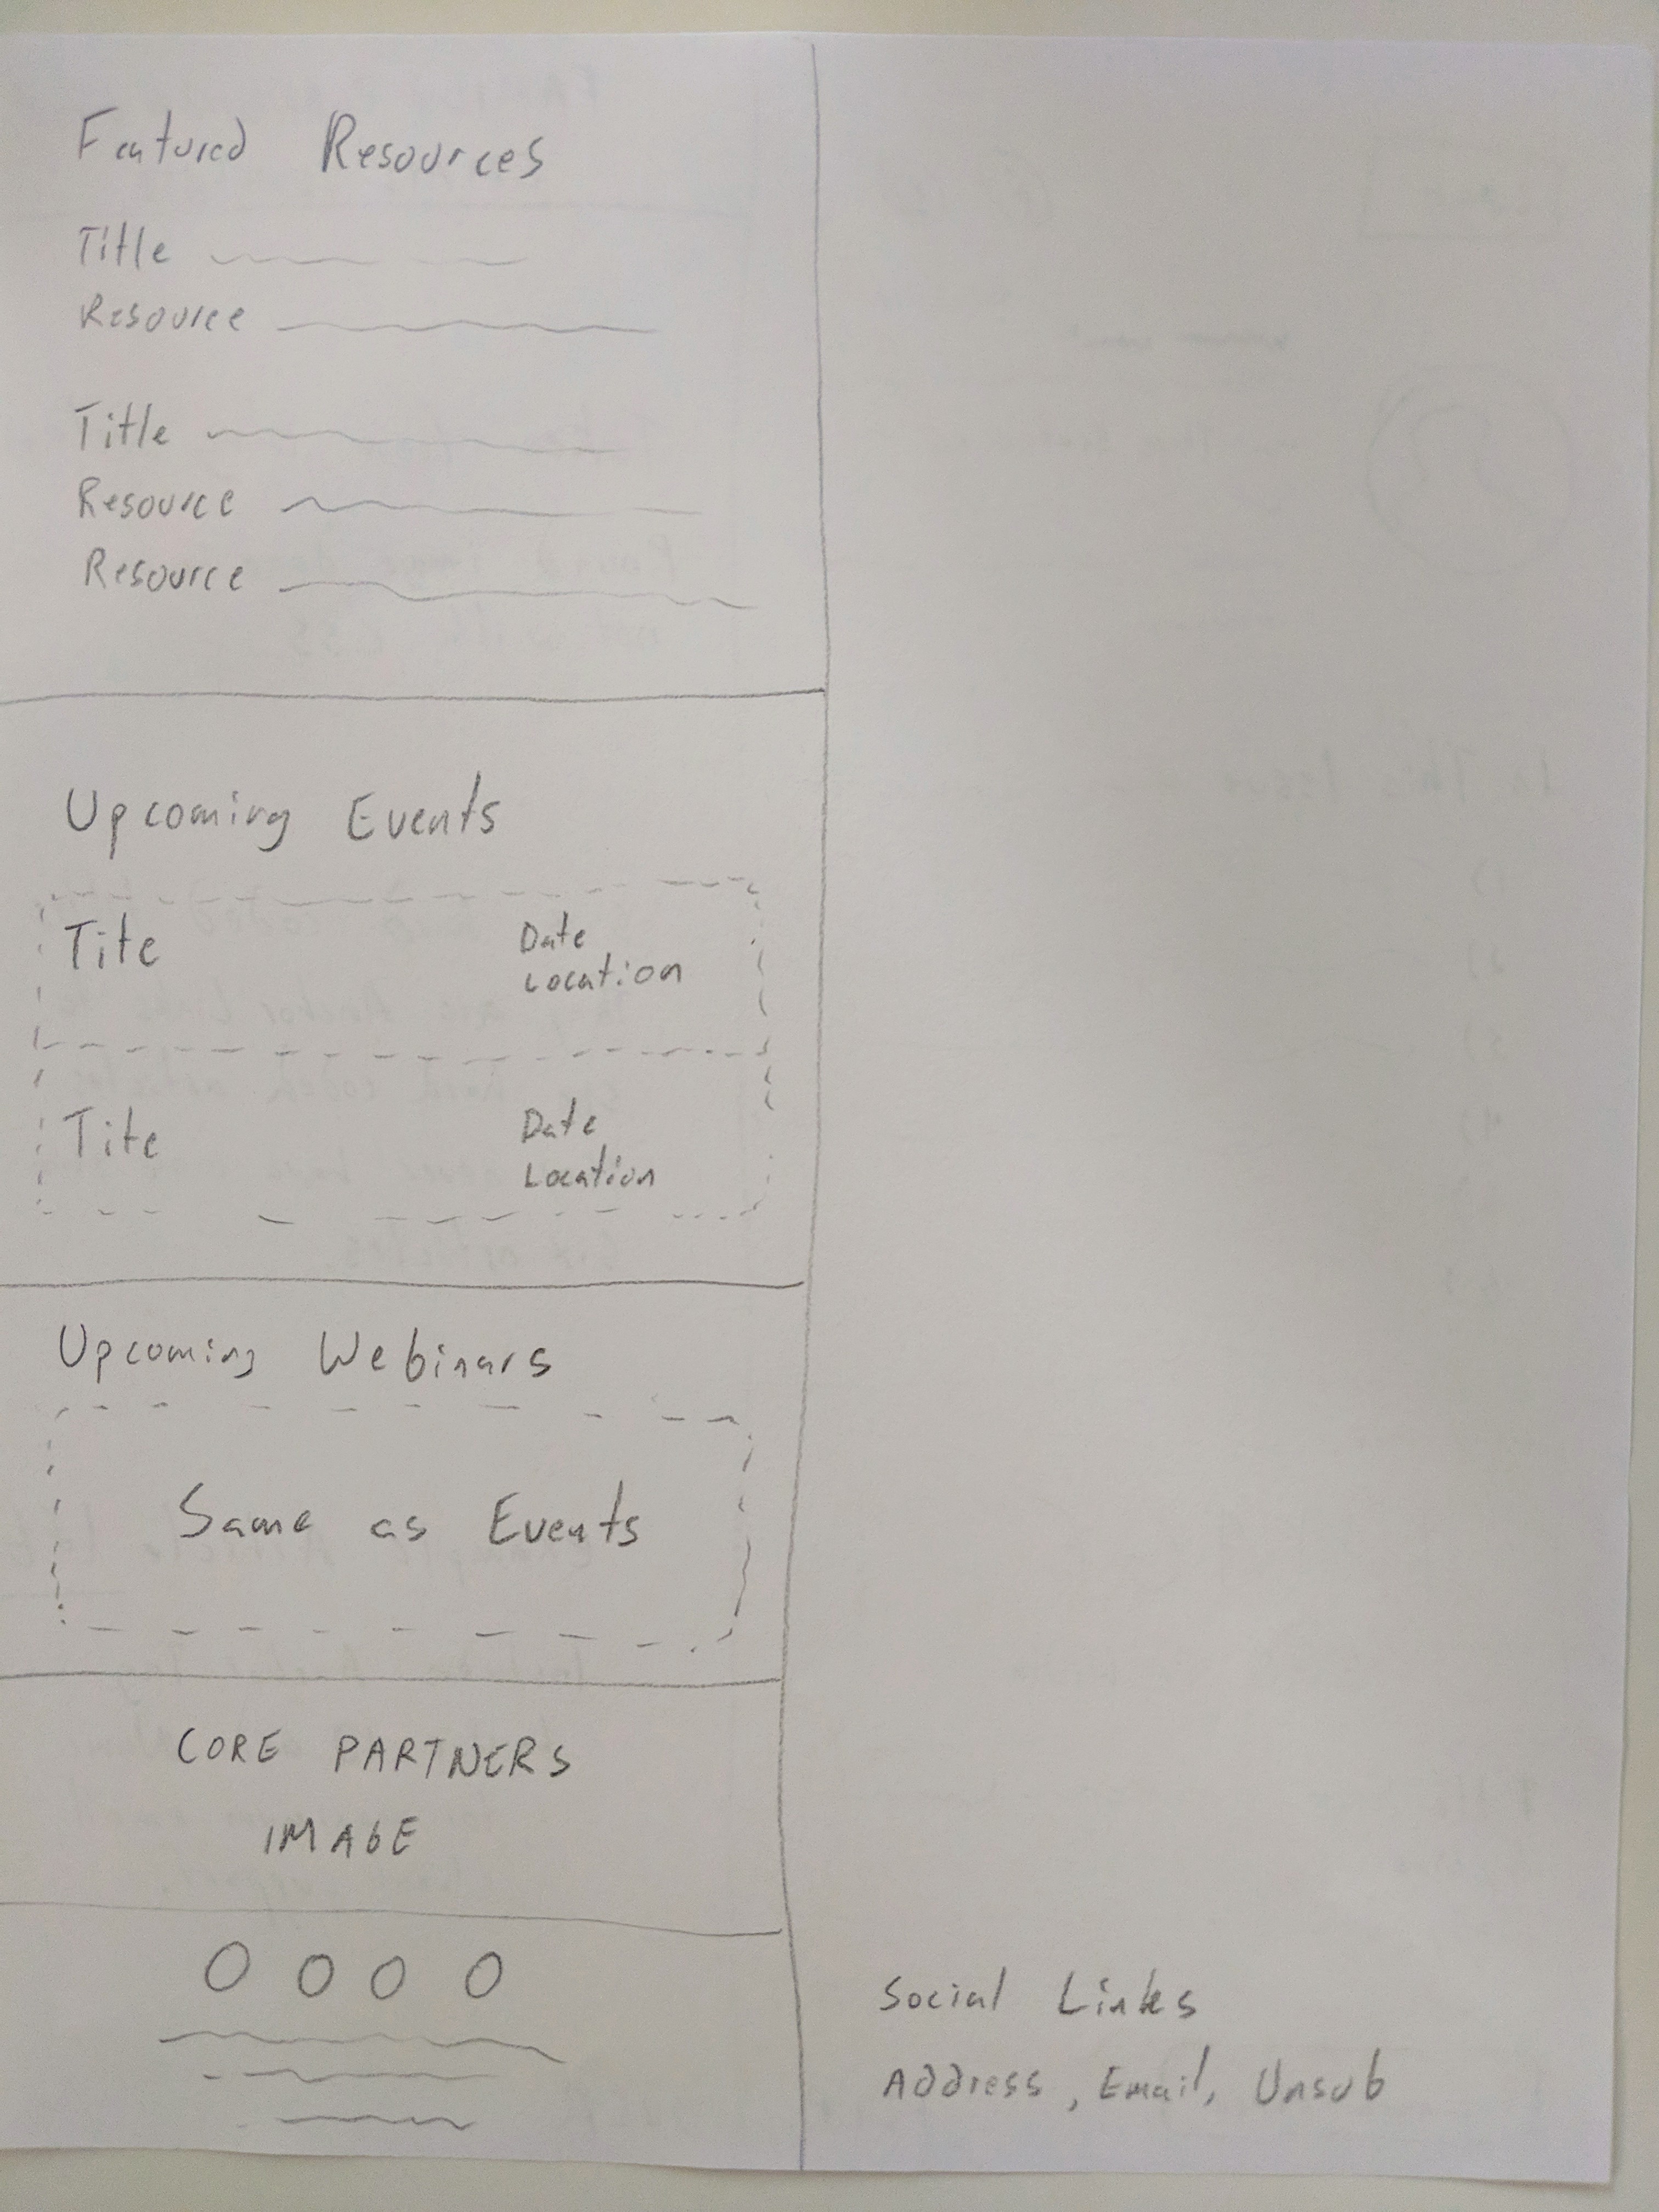 Featured Resources
Title
Resource
Title
Resource
Resource
Upcoming Events
Tite
Date
Location
Tite
Date
Location
Upcoming Webinars
Same as Events
CORE PARTNERS
IMAGE
Social Links
Address, Email, Unsub